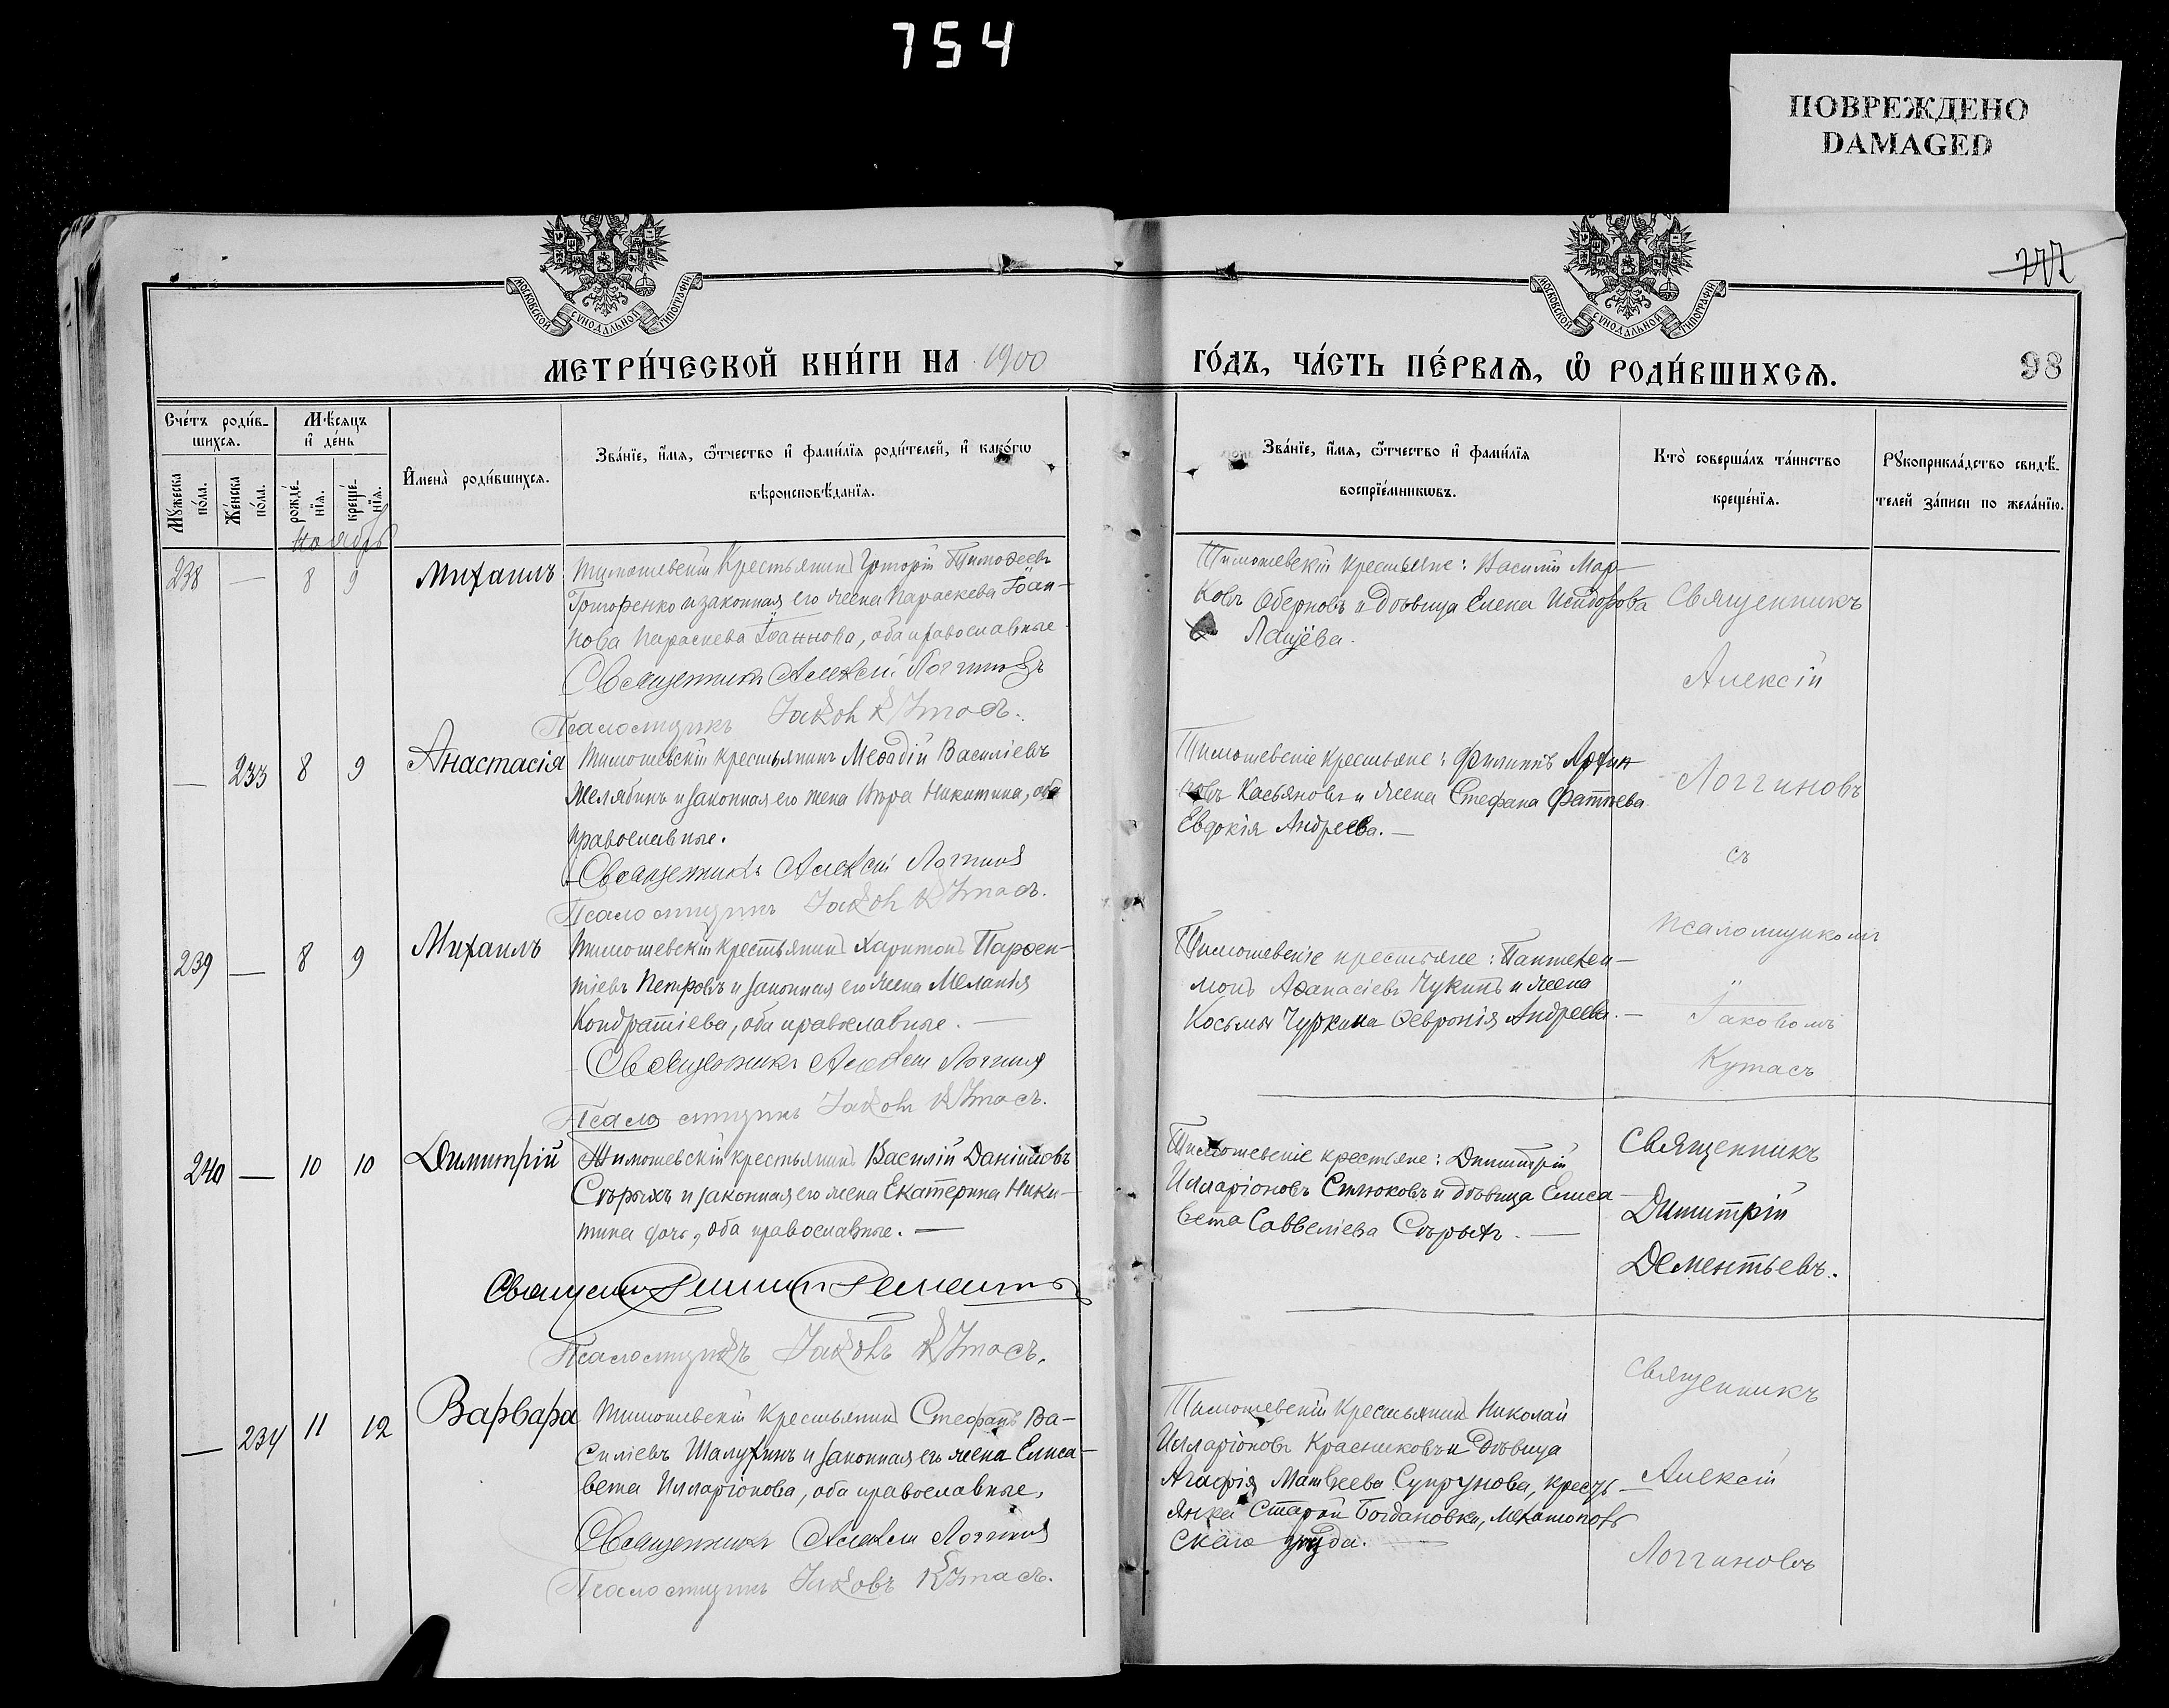 754
ПОВРЕЖДЕНО
DAMAGED
МОСКОВСКОЙ СѴНОДАЛЬНОЙ ТИПОГРАФІИ
МОСКОВСКОЙ СѴНОДАЛЬНОЙ ТИПОГРАФІИ
МЕТРИ́ЧЕСКОЙ КНИ́ГИ НА 1900
ГО́ДЪ, ЧА́СТЬ ПЕ́РВАѦ, Ѡ҆ РОДИ́ВШИХСѦ.
98
Сче́тъ роди́в-
шихсѧ.
Мꙋ́жеска по́ла.
Же́нска по́ла.
Мѣ́сѧцъ
и҆ де́нь
рожде́-
нїѧ.
креще́-
нїѧ.
И҆мена̀ роди́вшихсѧ.
Зва́нїе, и҆́мѧ, ѻ҆́тчество и҆ фами́лїѧ роди́телей, и҆ како́гѡ
вѣроисповѣ́данїѧ.
Зва́нїе, и҆́мѧ, ѻ҆́тчество и҆ фами́лїѧ
воспрїе́мникѡвъ.
Кто̀ соверша́лъ та́инство
креще́нїѧ.
Рꙋкоприкла́дство свидѣ́-
телей за́писи по жела́нїю.
Ноябрь
238 — 8 9 Михаилъ
Тимошевскій Крестьянинъ Григорій Тимофеевъ
и законная его жена Параскева Іоан-
нова Параскева Іоаннова, оба православные
Священникъ Алексѣй Логгиновъ
Псаломщикъ Іаковъ Кутасъ.
Тимошевскіе крестьяне: Василій Мар-
ковъ Оберновъ и дѣвица Елена Исидорова
Лащёва.
Священникъ
Алексій
Логгиновъ
съ
псаломщикомъ
Іаковомъ
Кутасъ
— 233 8 9 Анастасія
Тимошевскій крестьянинъ Меѳодій Василіевъ
Мелябинъ и законная его жена Вѣра Никитина, оба
православные.
Священникъ Алексѣй Логгиновъ
Псаломщикъ Іаковъ Кутасъ.
Тимошевскіе крестьяне: Филиппъ
Касьяновъ и жена Стефана Фатѣева
Евдокія Андреева. —
239 — 8 9 Михаилъ
Тимошевскій крестьянинъ Харитонъ Парѳен-
тіевъ Петровъ и законная его жена Меланія
Кондратіева, оба православные. —
Священникъ Алексѣй Логгиновъ
Псаломщикъ Іаковъ Кутасъ.
Тимошевскіе крестьяне: Пантелеи-
монъ Аѳанасіевъ Чукинъ и жена
Косьмы Чуркина Ѳевронія Андреева. —
240 — 10 10 Димитрій
Тимошевскій крестьянинъ Василій Даніиловъ
Сѣрыхъ и законная его жена Екатерина Ники-
тина дочь, оба православные. —
Псаломщикъ Іаковъ Кутасъ.
Тимошевскіе крестьяне: Димитрій
Илларіоновъ Силюковъ и дѣвица Елиса-
вета Саввеліева Сѣрыхъ. —
Священникъ
Димитрій
Дементьевъ.
— 234 11 12 Варвара
Тимошевскій Крестьянинъ Стефанъ Ва-
силіевъ Шалухинъ и законная его жена Елиса-
вета Илларіонова, оба православные,
Священникъ Алексѣй Логгиновъ
Псаломщикъ Іаковъ Кутасъ.
Тимошевскій Крестьянинъ Николай
Илларіоновъ Красниковъ и дѣвица
Агафія Матвѣева Супрунова, кресть-
янка Старой Богдановки, Мелитополь
скаго уѣзда. —
Священникъ
Алексій
Логгиновъ